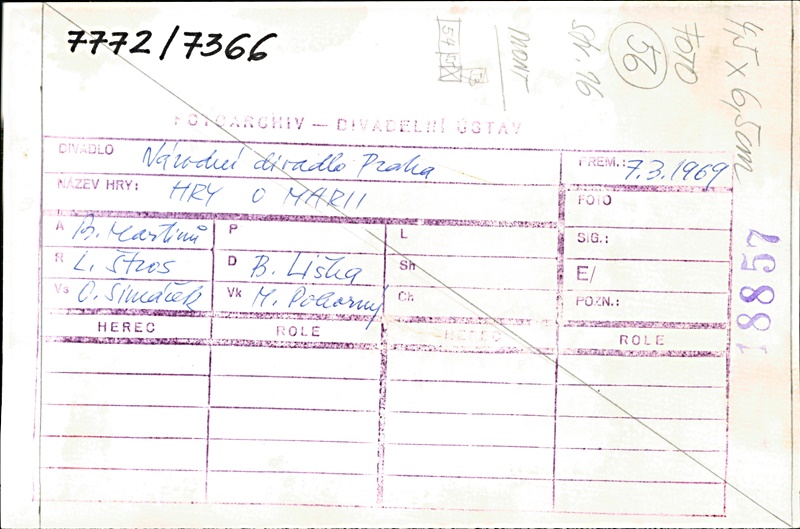 7772/7366
str. 16
56
FOTO
4,5 x 6,5cm
FOTOARCHIV — DIVADELNÍ ÚSTAV
DIVADLO Národní divadlo Praha
PREM.: 7.3.1969
NÁZEV HRY: HRY O MARII
FOTO
A B. Martinů P L SIG.:
R L. Štros D B. Liška Sh E/
Vs O. Šimáček Vk M. Pokorný Ch POZN.:
HEREC ROLE HEREC ROLE
18857